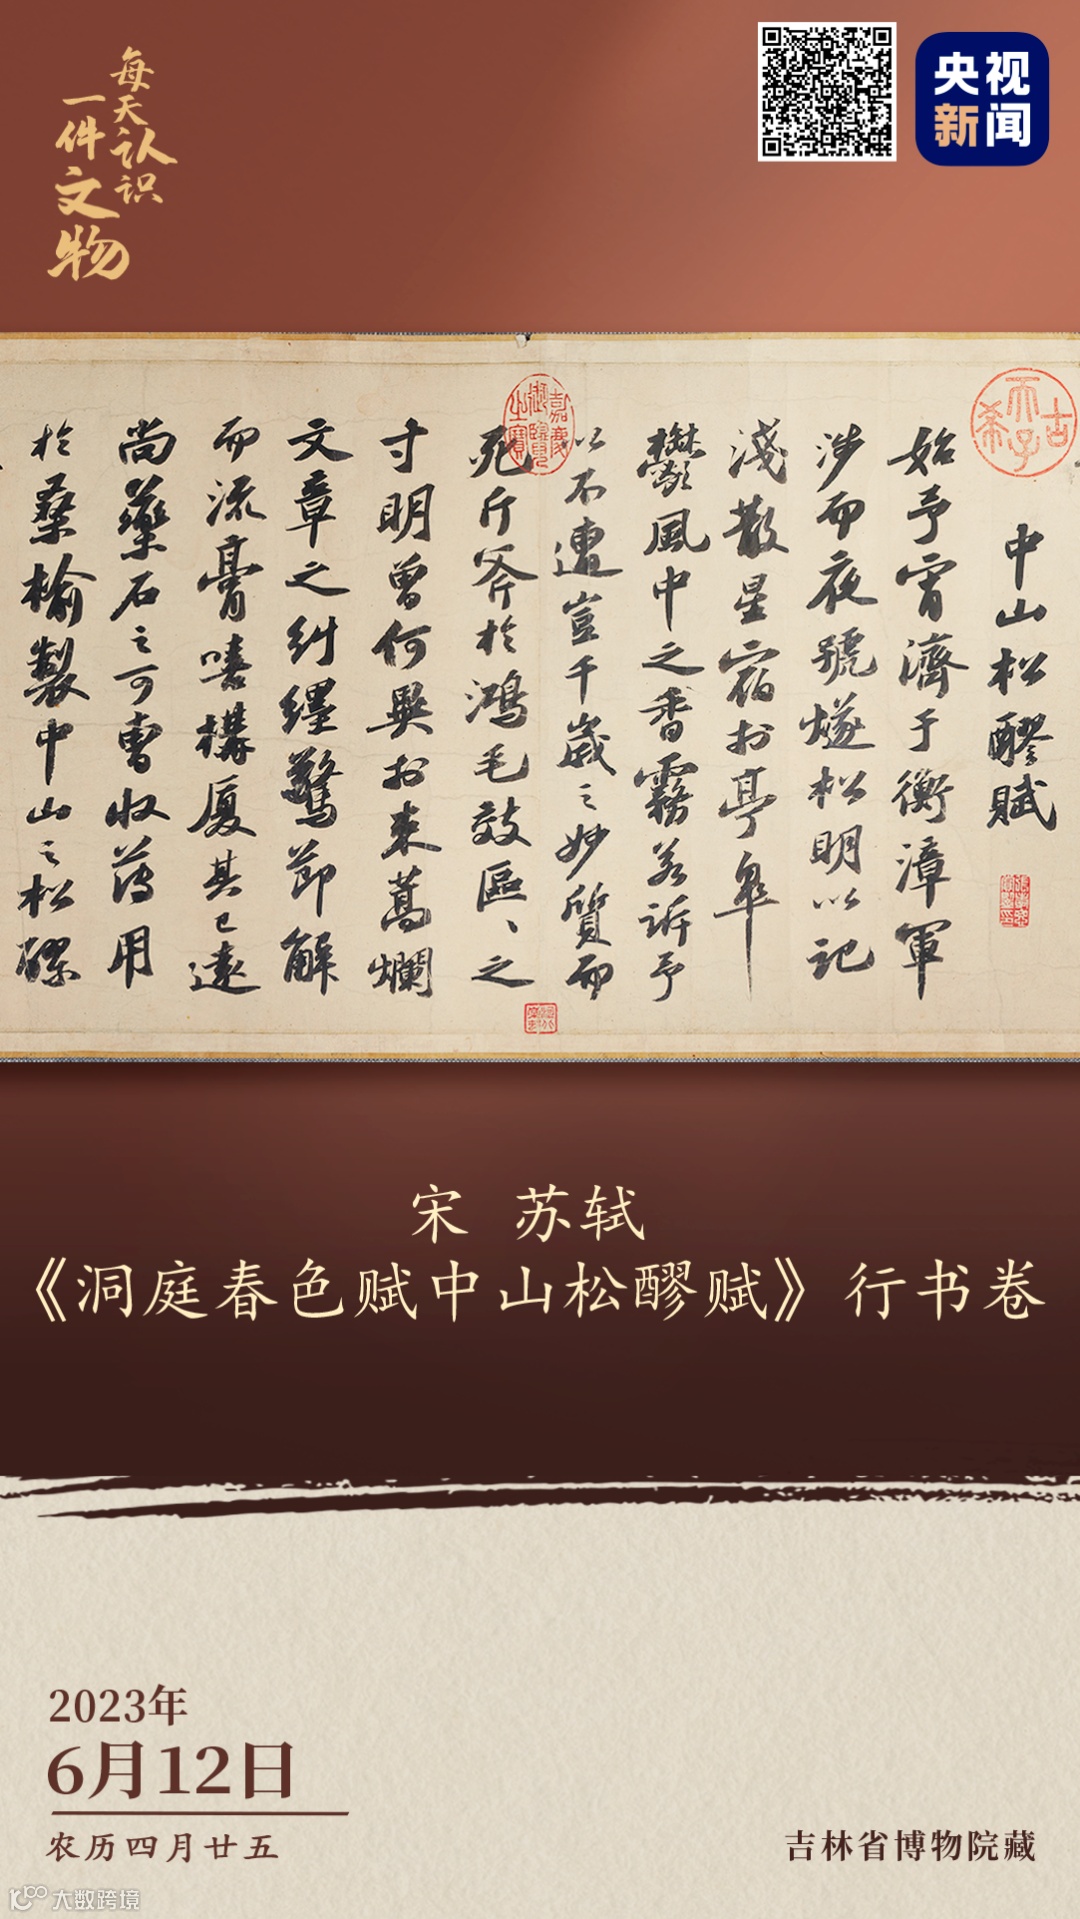 每天认识
一件文物
央视
新闻
古希天子
嘉慶御覽之寶
中山松醪賦
始予宵濟于衡漳軍
涉而夜號燧松明以記
淺散星宿於亭皐
鬱風中之香霧若訴予
以不遭豈千歲之妙質而
死斤斧於鴻毛效區、之
寸明曾何異於束蒿爛
文章之糾纏驚節解
而流膏嘻構厦其已遠
尚藥石之可曹收薄用
於桑榆製中山之松醪
宋 苏轼
《洞庭春色赋中山松醪赋》行书卷
2023年
6月12日
农历四月廿五
吉林省博物院藏
大数跨境